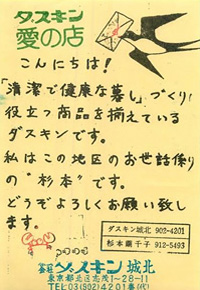 ダスキン
愛の店
こんにちは!
「清潔で健康な暮し」づくりに
役立つ商品を揃えている
ダスキンです。
私はこの地区のお世話係り
の"杉本"です。
どうぞよろしくお願い致し
ます。
ダスキン城北 902-4201
杉本 千子 912-5493
ダスキン城北
東京都北区志茂1-28-11
TEL03(902)4201番(代)